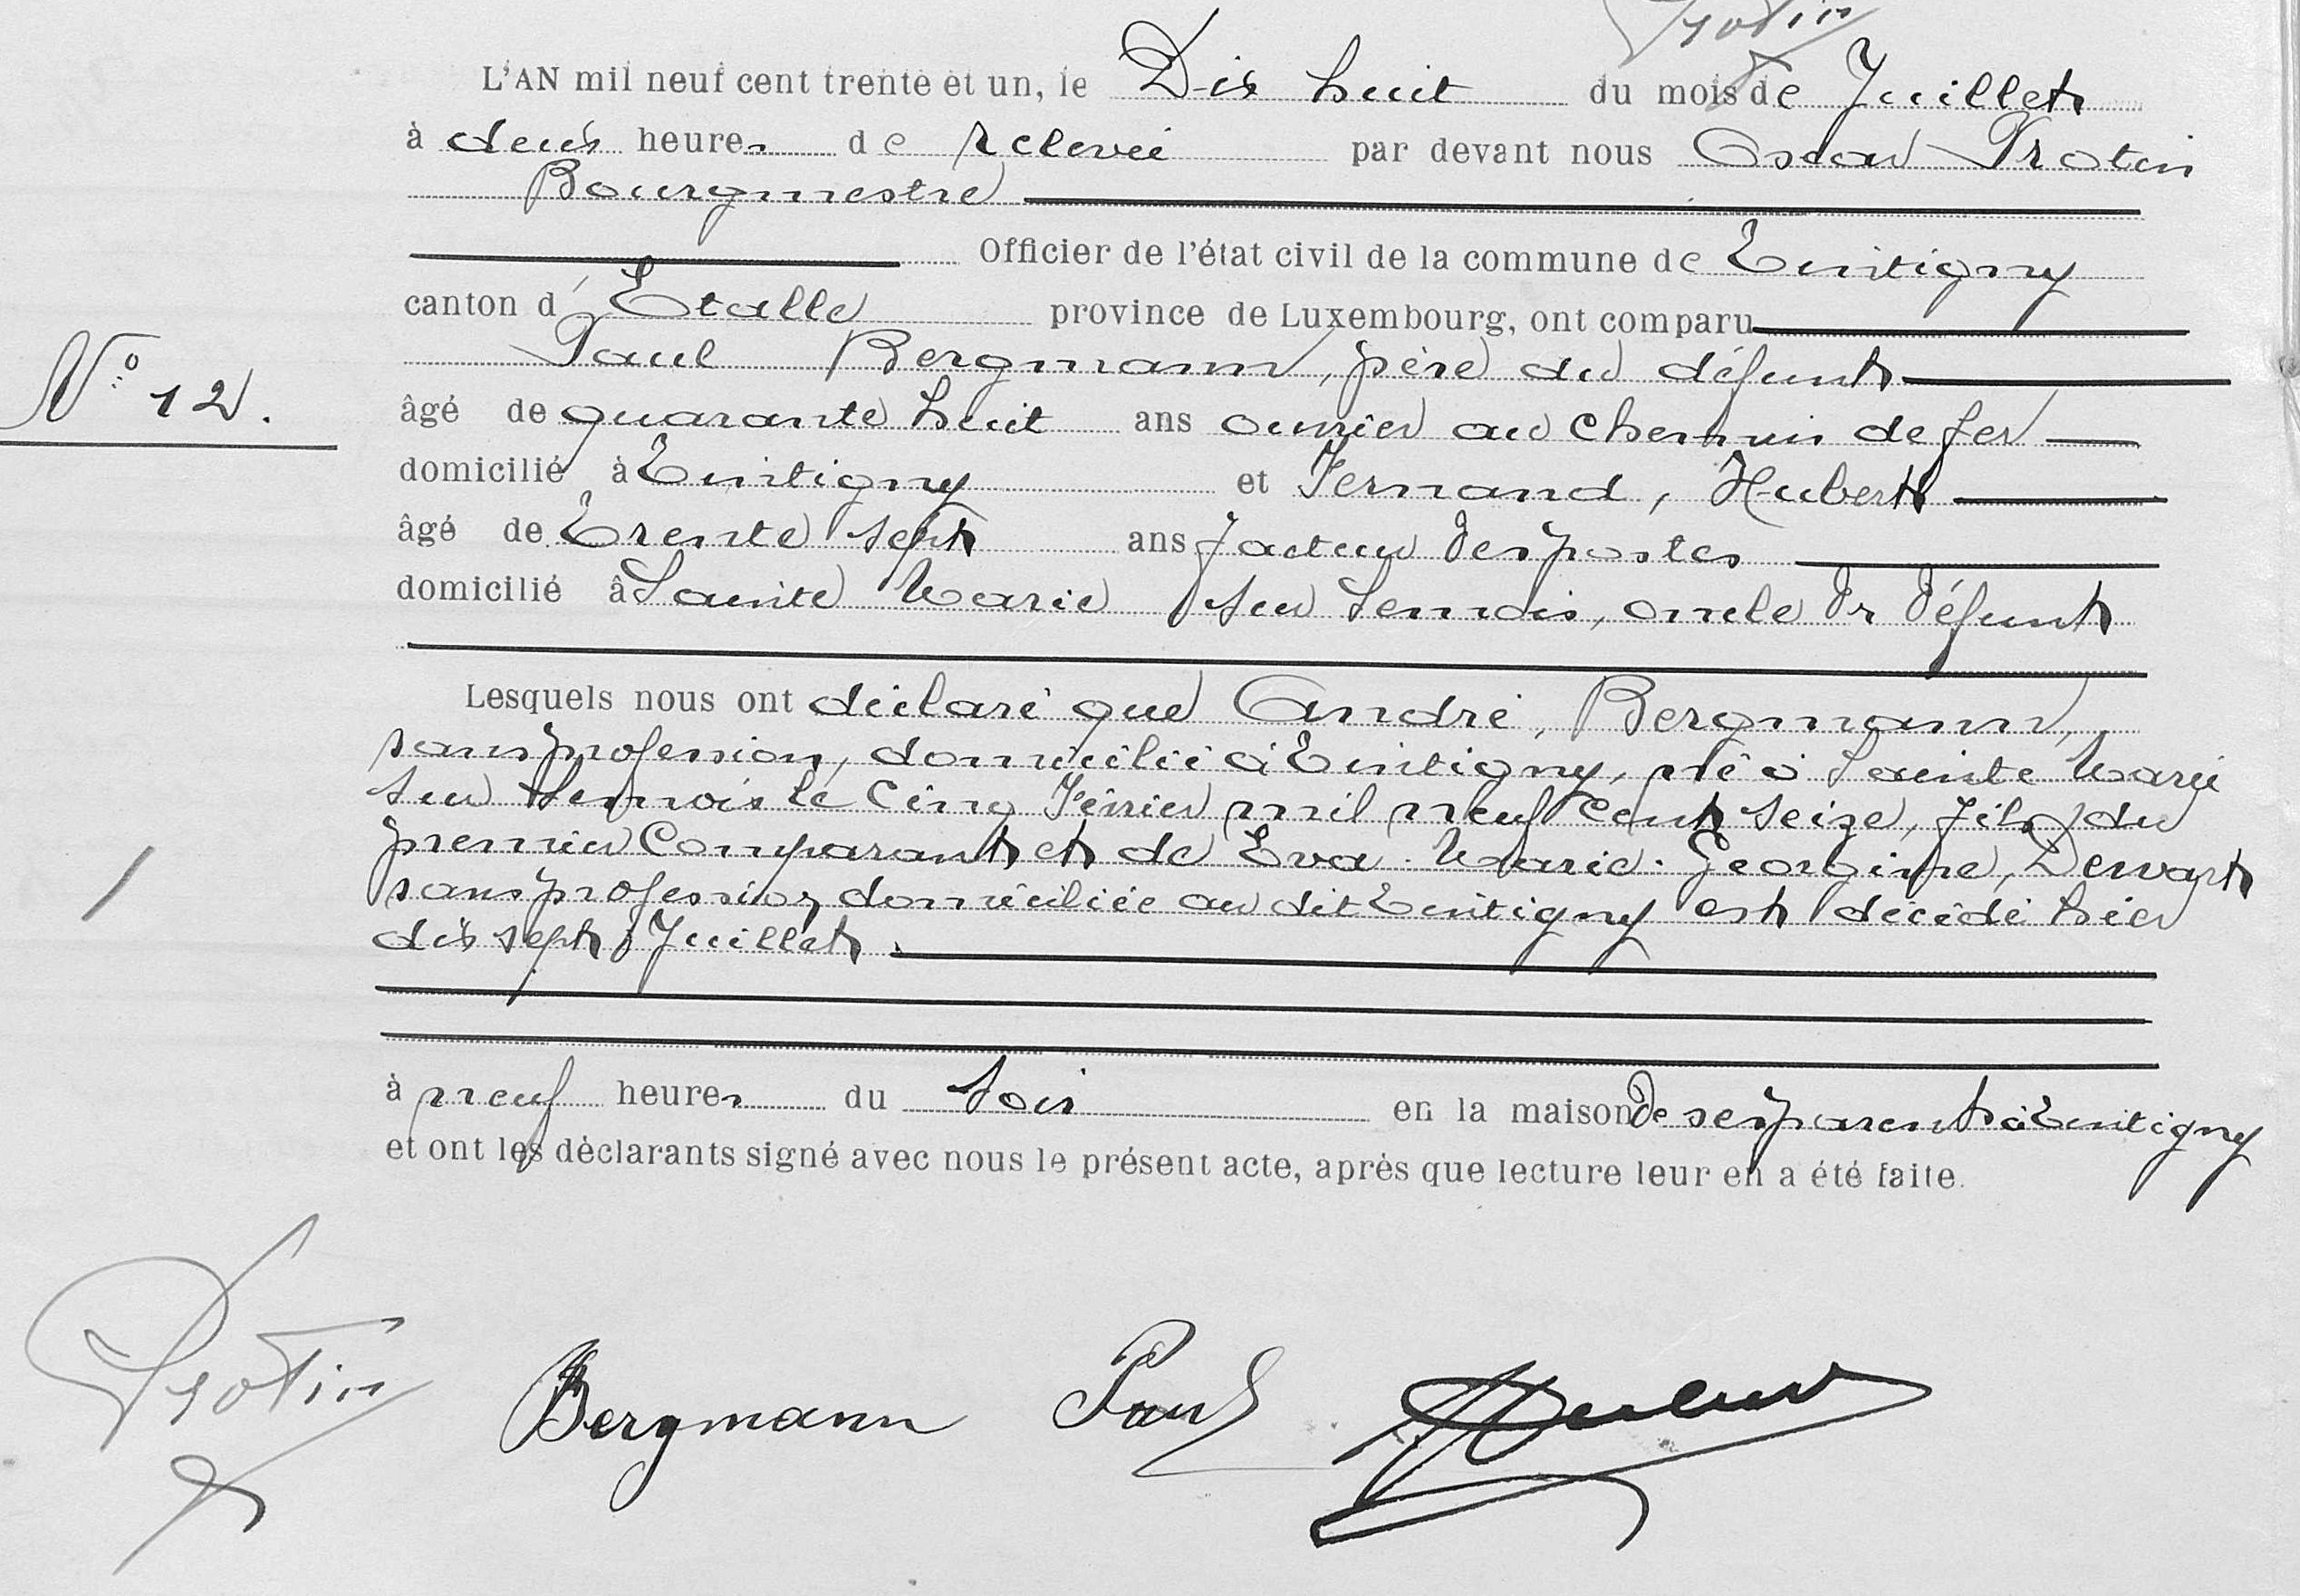 Protin
L'AN mil neuf cent trente et un, le Dix huit du mois de Juillet
à deux heures de relevée par devant nous Oscar Protin
Bourgmestre
Officier de l'état civil de la commune de Tintigny
canton d'Etalle province de Luxembourg, ont comparu
Paul Bergmann, père du défunt
N° 12.
âgé de quarante huit ans ouvrier au chemin de fer
domicilié à Tintigny et Fernand, Hubert
âgé de Trente sept ans facteur des postes
domicilié à Sainte Marie sur Semois, oncle du défunt
Lesquels nous ont déclaré que André, Bergmann,
sans profession, domicilié à Tintigny, né à Sainte Marie
sur Semois le cinq Février mil neuf cent seize, fils du
premier Comparant et de Eva. Marie. Georgine,
sans profession, domiciliée au dit Tintigny est décédé hier
dix sept Juillet.
à neuf heures du soir en la maison de ses parents à Tintigny
et ont les déclarants signé avec nous le présent acte, après que lecture leur en a été faite.
Protin
Bergmann Paul